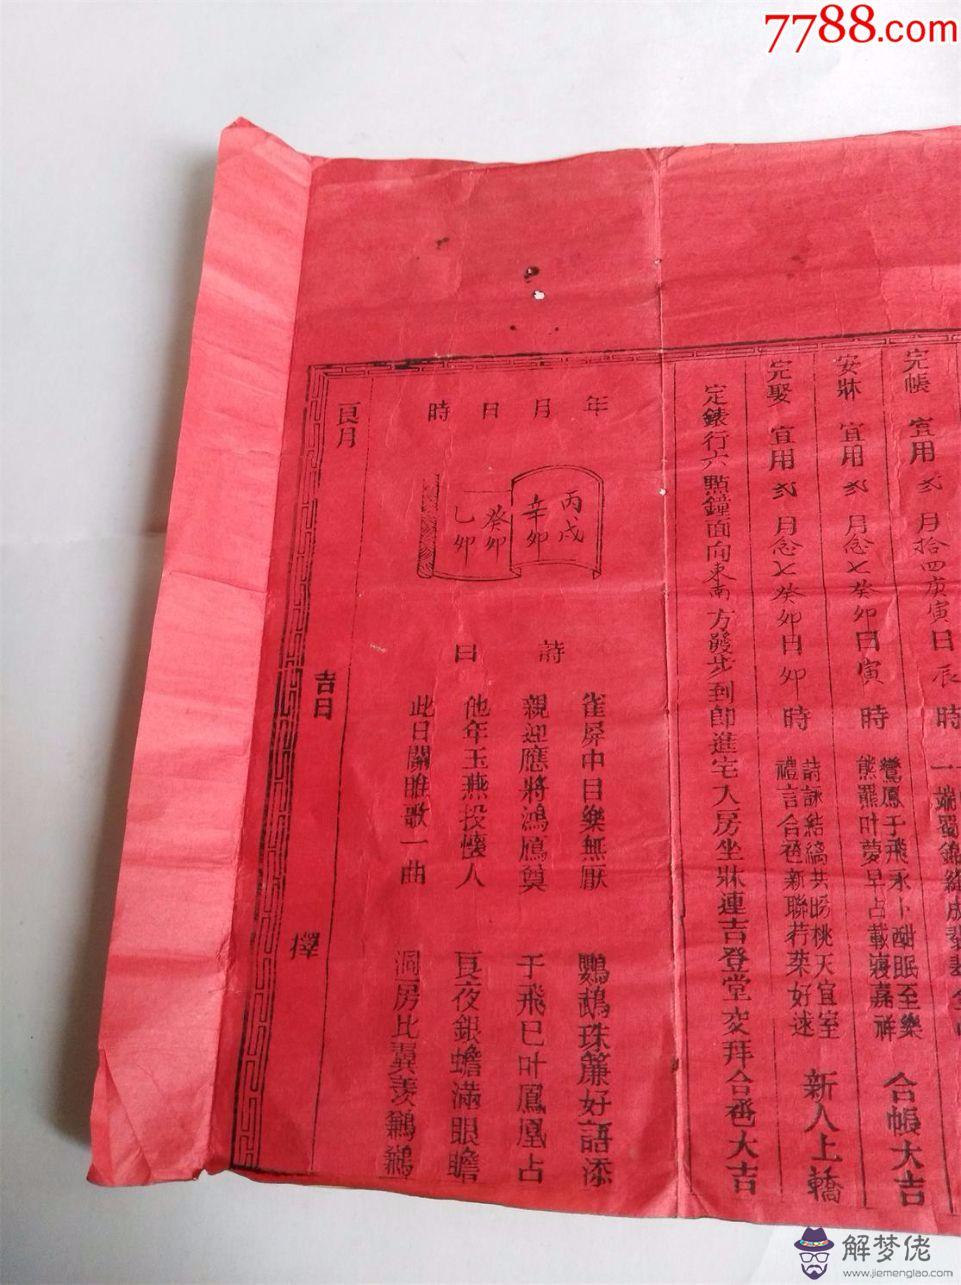 7788.com
完帳 宜用弍月拾四庚寅日辰時
安牀 宜用弍月念七癸卯日寅時 鸞鳳于飛永卜酣眠至樂 熊羆叶夢早占載寢嘉祥 合帳大吉
完娶 宜用弍月念七癸卯日卯時 詩詠結縭共盼桃夭宜室 禮言合卺新聯荇菜好逑 新人上轎
定錶行六點鐘面向東南方發步到卽進宅入房坐牀連吉登堂交拜合卺大吉
年月日時
丙戌
辛卯
癸卯
乙卯
詩曰
雀屏中目樂無厭 鸚鵡珠簾好語添
親迎應將鴻鴈奠 于飛已叶鳳凰占
他年玉燕投懷人 亙夜銀蟾滿眼瞻
此日關雎歌一曲 洞房比翼羡鶼鶼
良月
吉日
擇
解梦佬
www.jiemenglao.com